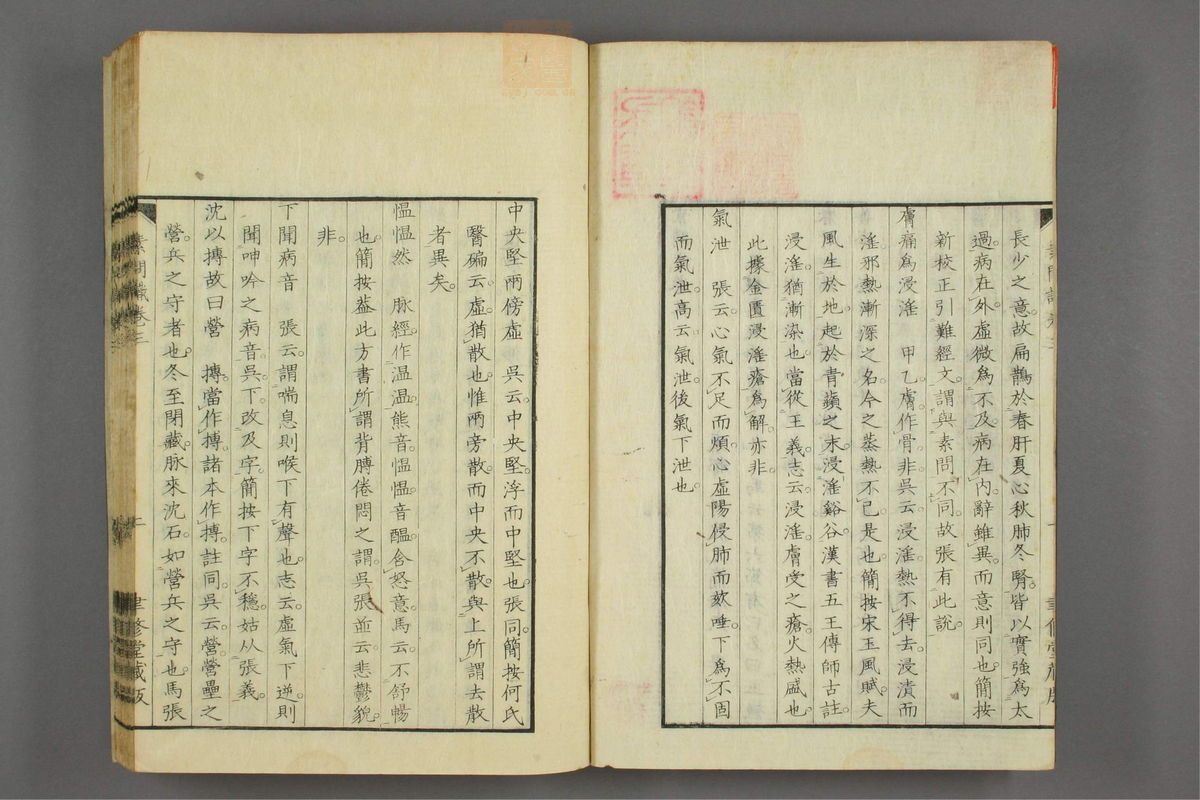 長少之意。故扁鵲於春肝夏心秋肺冬腎。皆以實強爲太
過。病在外。虛微爲不及。病在內。辭雖異。而意則同也。簡按
新校正引難經文。謂與素問不同。故張有此說。
膚痛爲浸淫　甲乙。膚作骨。非。吳云。浸淫。熱不得去。浸漬而
淫。邪熱漸深之名。今之蒸熱不已。是也。簡按宋玉風賦。夫
風生於地。起於青蘋之末。浸淫谿谷。漢書五王傳師古註。
浸淫。猶漸染也。當從王義。志云。浸淫。膚受之瘡。火熱盛也。
此據金匱浸淫瘡爲解。亦非。
氣泄　張云。心氣不足而煩。心虛陽侵肺而欬唾。下爲不固
而氣泄。高云。氣泄。後氣下泄也。
中央堅兩傍虛　吳云。中央堅。浮而中堅也。張同。簡按何氏
醫碥云。虛。猶散也。惟兩旁散。而中央不散。與上所謂去散
者異矣。
慍慍然　脉經。作温温。熊音。慍慍。音醞。含怒意。馬云。不舒暢
也。簡按。葢此方書所謂背膊倦悶之謂。吳張並云。悲鬱貌。
非。
下聞病音　張云。謂喘息則喉下有聲也。志云。虛氣下逆。則
聞呻吟之病音。吳。下。改及字。簡按下字不穩。姑从張義。
沈以搏故曰營　搏。當作摶。諸本作搏。註同。吳云。營。營壘之
營。兵之守者也。冬至閉藏。脉來沈石。如營兵之守也。馬張
素問識卷三
二
聿修堂藏版